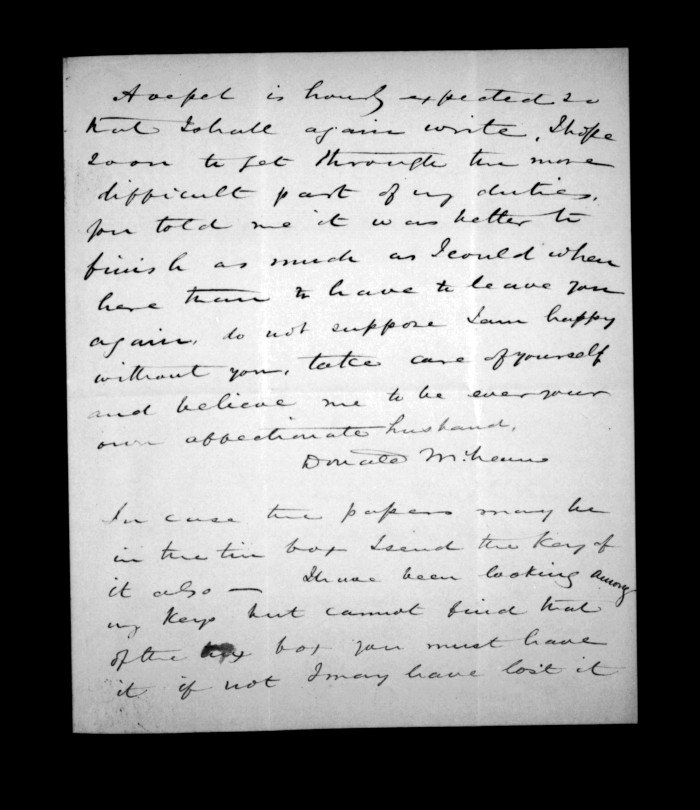 A vessel is hourly expected so
that I shall again write, I hope
soon to get through the more
difficult part of my duties.
you told me it was better to
finish as much as I could when
here than to have to leave you
again, do not suppose I am happy
without you, take care of yourself
and believe me to be ever your
own affectionate husband,
Donald McLean
In case the papers may be
in the tin box I send the key of
it also — I have been looking among
my keys but cannot find that
of the box you must have
it if not I may have lost it